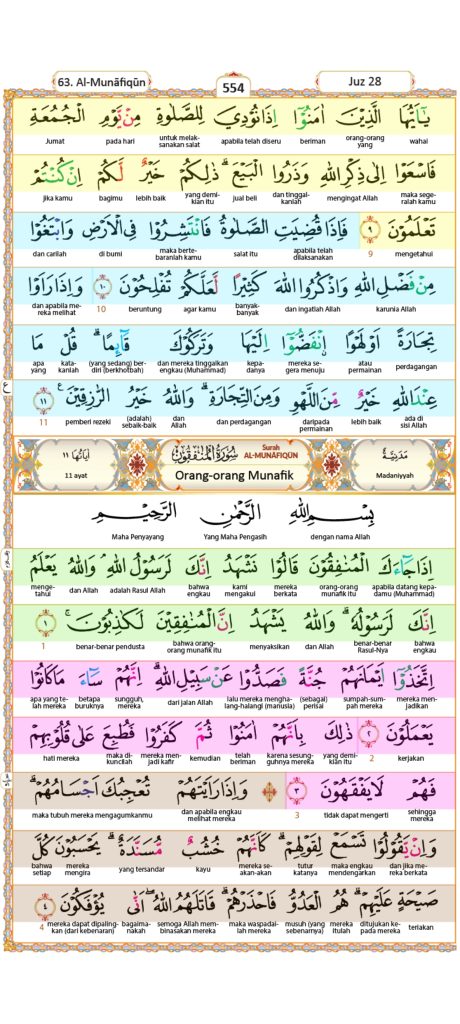 63. Al-Munāfiqūn 554 Juz 28
يٰٓاَيُّهَا الَّذِيْنَ اٰمَنُوْٓا اِذَا نُوْدِيَ لِلصَّلٰوةِ مِنْ يَّوْمِ الْجُمُعَةِ
wahai orang-orang yang beriman apabila telah diseru untuk melak-sanakan salat pada hari Jumat
فَاسْعَوْا اِلٰى ذِكْرِ اللّٰهِ وَذَرُوا الْبَيْعَۗ ذٰلِكُمْ خَيْرٌ لَّكُمْ اِنْ كُنْتُمْ
maka sege-ralah kamu mengingat Allah dan tinggal-kanlah jual beli yang demi-kian itu lebih baik bagimu jika kamu
تَعْلَمُوْنَ ٩ فَاِذَا قُضِيَتِ الصَّلٰوةُ فَانْتَشِرُوْا فِى الْاَرْضِ وَابْتَغُوْا
mengetahui 9 apabila telah dilaksanakan salat itu maka berte-baranlah kamu di bumi dan carilah
مِنْ فَضْلِ اللّٰهِ وَاذْكُرُوا اللّٰهَ كَثِيْرًا لَّعَلَّكُمْ تُفْلِحُوْنَ ١٠ وَاِذَا رَاَوْا
karunia Allah dan ingatlah Allah banyak-banyak agar kamu beruntung 10 dan apabila me-reka melihat
تِجَارَةً اَوْ لَهْوًا ۨانْفَضُّوْٓا اِلَيْهَا وَتَرَكُوْكَ قَاۤىِٕمًاۗ قُلْ مَا
perdagangan atau permainan mereka se-gera menuju kepa-danya dan mereka tinggalkan engkau (Muhammad) (yang sedang) ber-diri (berkhotbah) katakan-lah apa yang
عِنْدَ اللّٰهِ خَيْرٌ مِّنَ اللَّهْوِ وَمِنَ التِّجَارَةِۗ وَاللّٰهُ خَيْرُ الرّٰزِقِيْنَ ١١
ada di sisi Allah lebih baik daripada permainan dan perdagangan dan Allah (adalah) sebaik-baik pemberi rezeki 11
ع
مَدَنِيَّة سُوْرَةُ الْمُنٰفِقُوْنَ Surah AL-MUNĀFIQŪN اٰيَاتُهَا ١١
Madaniyyah Orang-orang Munafik 11 ayat
بِسْمِ اللّٰهِ الرَّحْمٰنِ الرَّحِيْمِ
dengan nama Allah Yang Maha Pengasih Maha Penyayang
اِذَا جَاۤءَكَ الْمُنٰفِقُوْنَ قَالُوْا نَشْهَدُ اِنَّكَ لَرَسُوْلُ اللّٰهِ ۘوَاللّٰهُ يَعْلَمُ
apabila datang kepa-damu (Muhammad) orang-orang munafik itu mereka berkata kami mengakui bahwa engkau adalah Rasul Allah dan Allah menge-tahui
اِنَّكَ لَرَسُوْلُهٗ ۗوَاللّٰهُ يَشْهَدُ اِنَّ الْمُنٰفِقِيْنَ لَكٰذِبُوْنَۚ ١
bahwa engkau benar-benar Rasul-Nya dan Allah menyaksikan bahwa orang-orang munafik itu benar-benar pendusta 1
اِتَّخَذُوْٓا اَيْمَانَهُمْ جُنَّةً فَصَدُّوْا عَنْ سَبِيْلِ اللّٰهِ ۗاِنَّهُمْ سَاۤءَ مَا كَانُوْا
mereka men-jadikan sumpah-sum-pah mereka (sebagai) perisai lalu mereka mengha-lang-halangi (manusia) dari jalan Allah sungguh, mereka betapa buruknya apa yang te-lah mereka
يَعْمَلُوْنَ ٢ ذٰلِكَ بِاَنَّهُمْ اٰمَنُوْا ثُمَّ كَفَرُوْا فَطُبِعَ عَلٰى قُلُوْبِهِمْ
kerjakan 2 yang demi-kian itu karena sesung-guhnya mereka telah beriman kemudian mereka men-jadi kafir maka di-kuncilah hati mereka
فَهُمْ لَا يَفْقَهُوْنَ ٣ وَاِذَا رَاَيْتَهُمْ تُعْجِبُكَ اَجْسَامُهُمْۗ
sehingga mereka tidak dapat mengerti 3 dan apabila engkau melihat mereka maka tubuh mereka mengagumkanmu
وَاِنْ يَّقُوْلُوْا تَسْمَعْ لِقَوْلِهِمْۗ كَاَنَّهُمْ خُشُبٌ مُّسَنَّدَةٌ ۗيَحْسَبُوْنَ كُلَّ
dan jika me-reka berkata maka engkau mendengarkan tutur katanya mereka se-akan-akan kayu yang tersandar mereka mengira bahwa setiap
صَيْحَةٍ عَلَيْهِمْۗ هُمُ الْعَدُوُّ فَاحْذَرْهُمْۗ قَاتَلَهُمُ اللّٰهُ ۖاَنّٰى يُؤْفَكُوْنَ ٤
teriakan ditujukan ke-pada mereka mereka itulah musuh (yang sebenarnya) maka waspadai-lah mereka semoga Allah mem-binasakan mereka bagaima-nakah mereka dapat dipaling-kan (dari kebenaran) 4